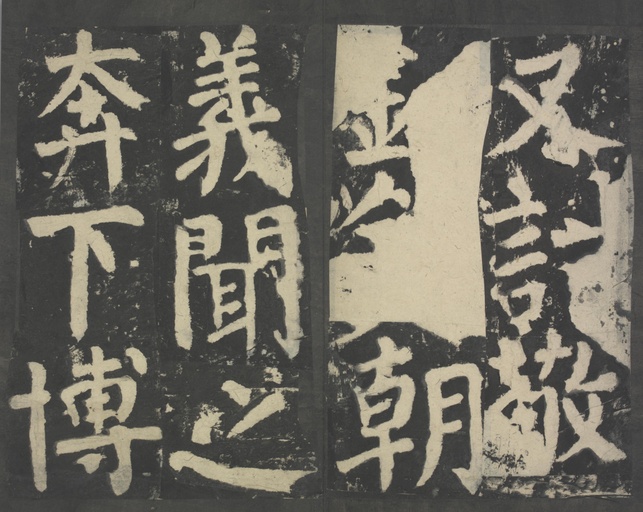 又敬
朝
義聞之
奔下博